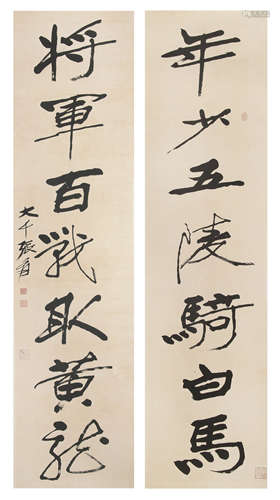 年少五陵騎白馬
將軍百戰取黃龍
大千張爰